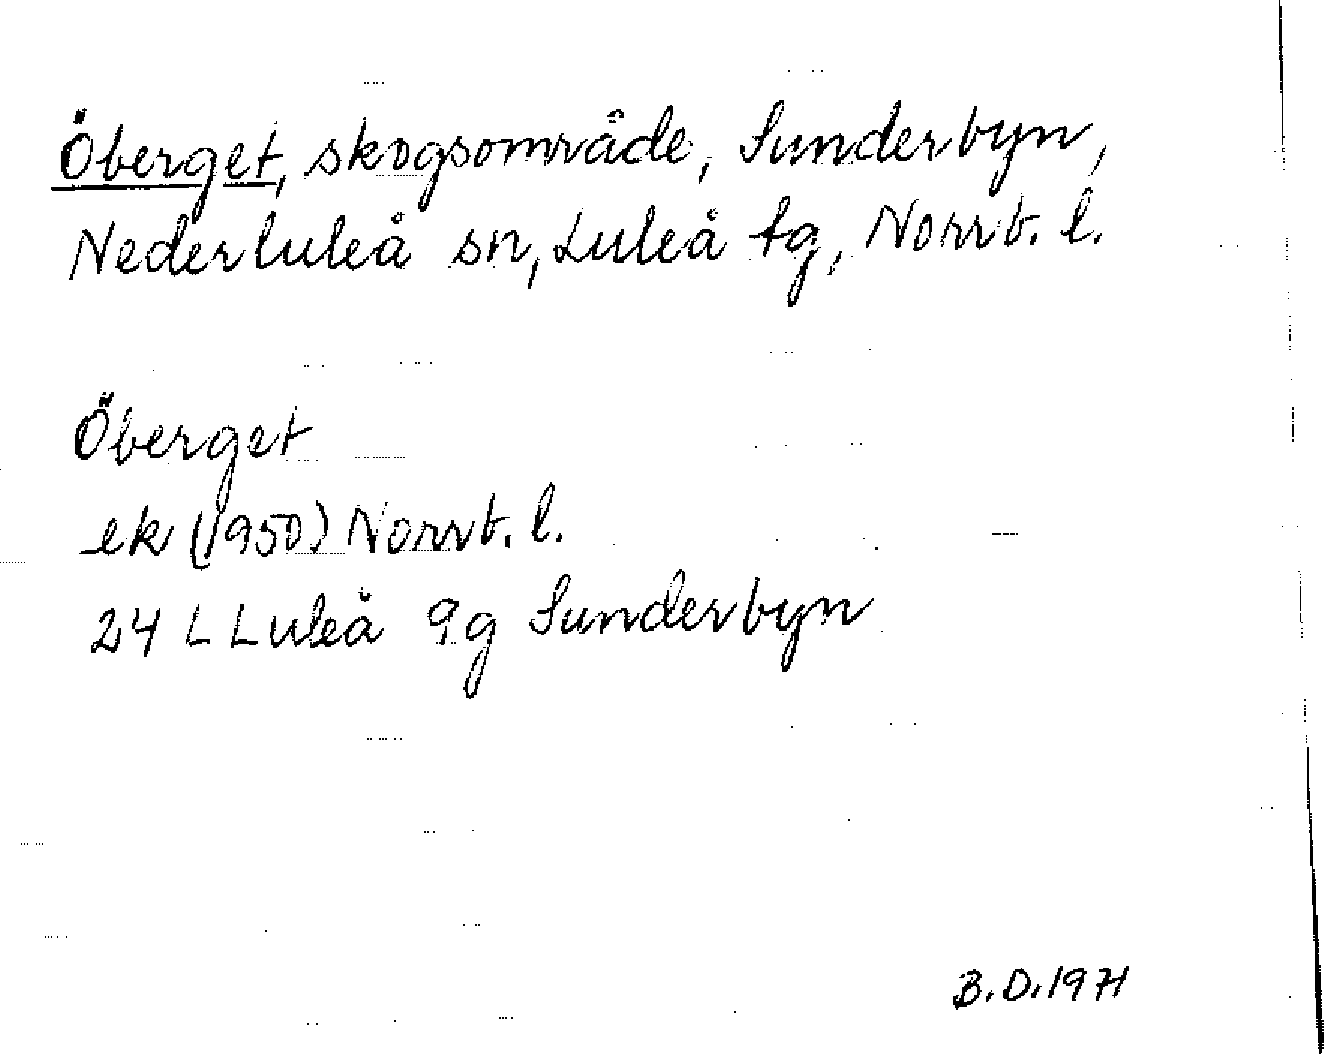 Öberget, skogsområde, Sunderbyn,
Nederluleå sn, Luleå tg, Norrb. l.
Öberget
ek (1950) Norrb. l.
24 L Luleå 9g Sunderbyn
B.D. 1971